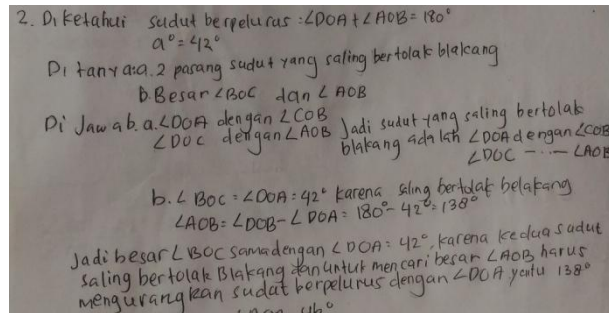 2. Diketahui sudut berpelurus : ∠DOA + ∠AOB = 180°
a° = 42°
Di tanya: a. 2 pasang sudut yang saling bertolak blakang
b. Besar ∠BOC dan ∠AOB
Di Jawab. a. ∠DOA dengan ∠COB
∠DOC dengan ∠AOB
Jadi sudut yang saling bertolak
blakang adalah ∠DOA dengan ∠COB
∠DOC -..- ∠AOB
b. ∠BOC = ∠DOA = 42° karena saling bertolak belakang
∠AOB = ∠DOB - ∠DOA = 180° - 42° = 138°
Jadi besar ∠BOC sama dengan ∠DOA = 42°, karena kedua sudut
saling bertolak Blakang dan untuk mencari besar ∠AOB harus
mengurangkan sudut berpelurus dengan ∠DOA yaitu 138°